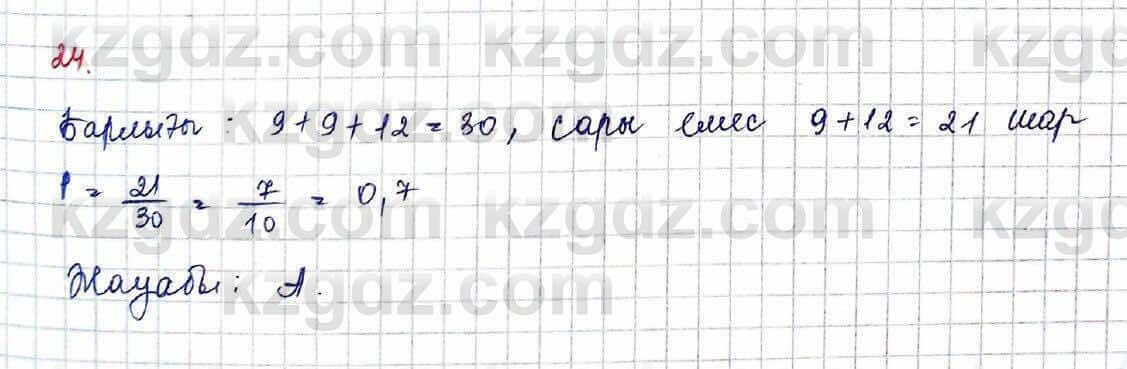 kzgdz.com kzgdz.com kzgd
24.
Барлығы: 9+9+12=30, сары емес 9+12=21 шар
kzgdz.com
P = 21/30 = 7/10 = 0,7
kzgdz.com kzgdz.com kzgd
Жауабы: А.
kzgdz.com